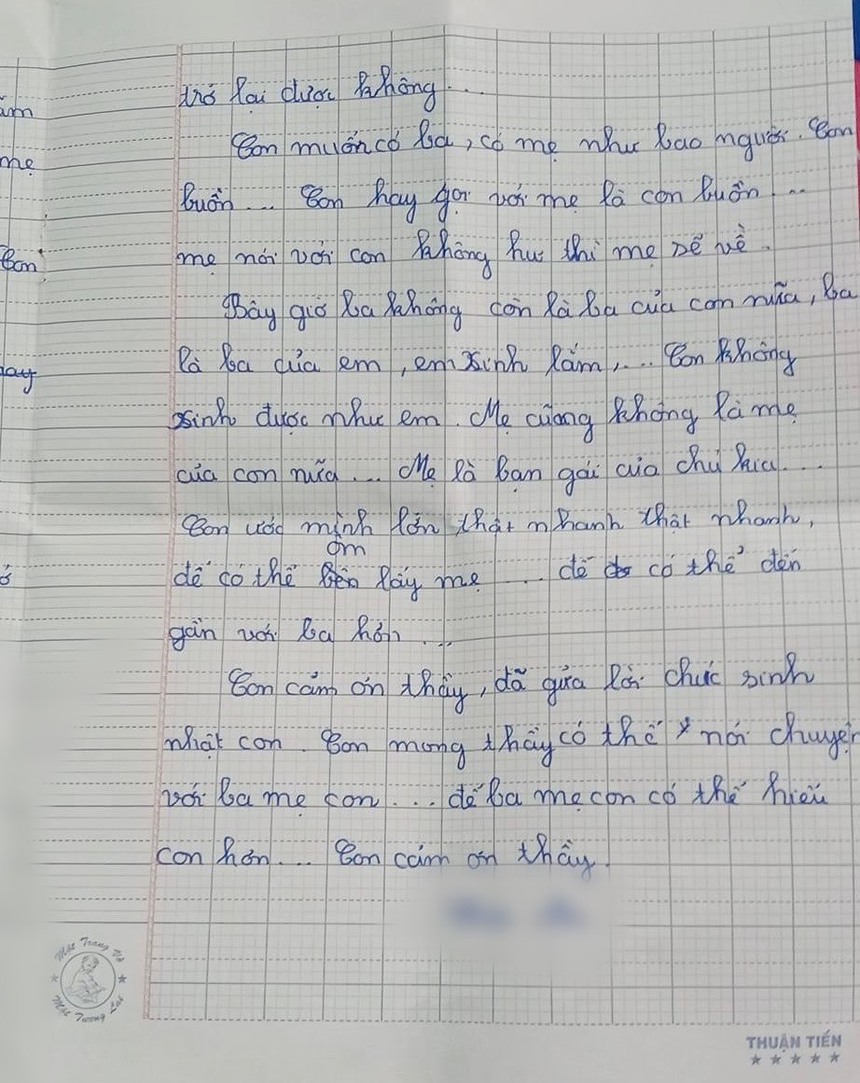 ăm
mẹ
Con
hay
trở lại được không....
Con muốn có ba, có mẹ như bao người. Con
buồn... Con hay gọi với mẹ là con buồn...
mẹ nói với con không hư thì mẹ sẽ về.
Bây giờ ba không còn là ba của con nữa, ba
là ba của em, em xinh lắm,... Con không
xinh được như em. Mẹ cũng không là mẹ
của con nữa... Mẹ là bạn gái của chú kia....
Con ước mình lớn thật nhanh thật nhanh,
ôm
để có thể lấy mẹ ... để có thể đến
gần với ba hơn ...
Con cảm ơn thầy, đã gửi lời chúc sinh
nhật con. Con mong thầy có thể nói chuyện
với ba mẹ con... để ba mẹ con có thể hiểu
con hơn... Con cảm ơn thầy.
Một Trang Vở
Một Tương Lai
THUẬN TIẾN